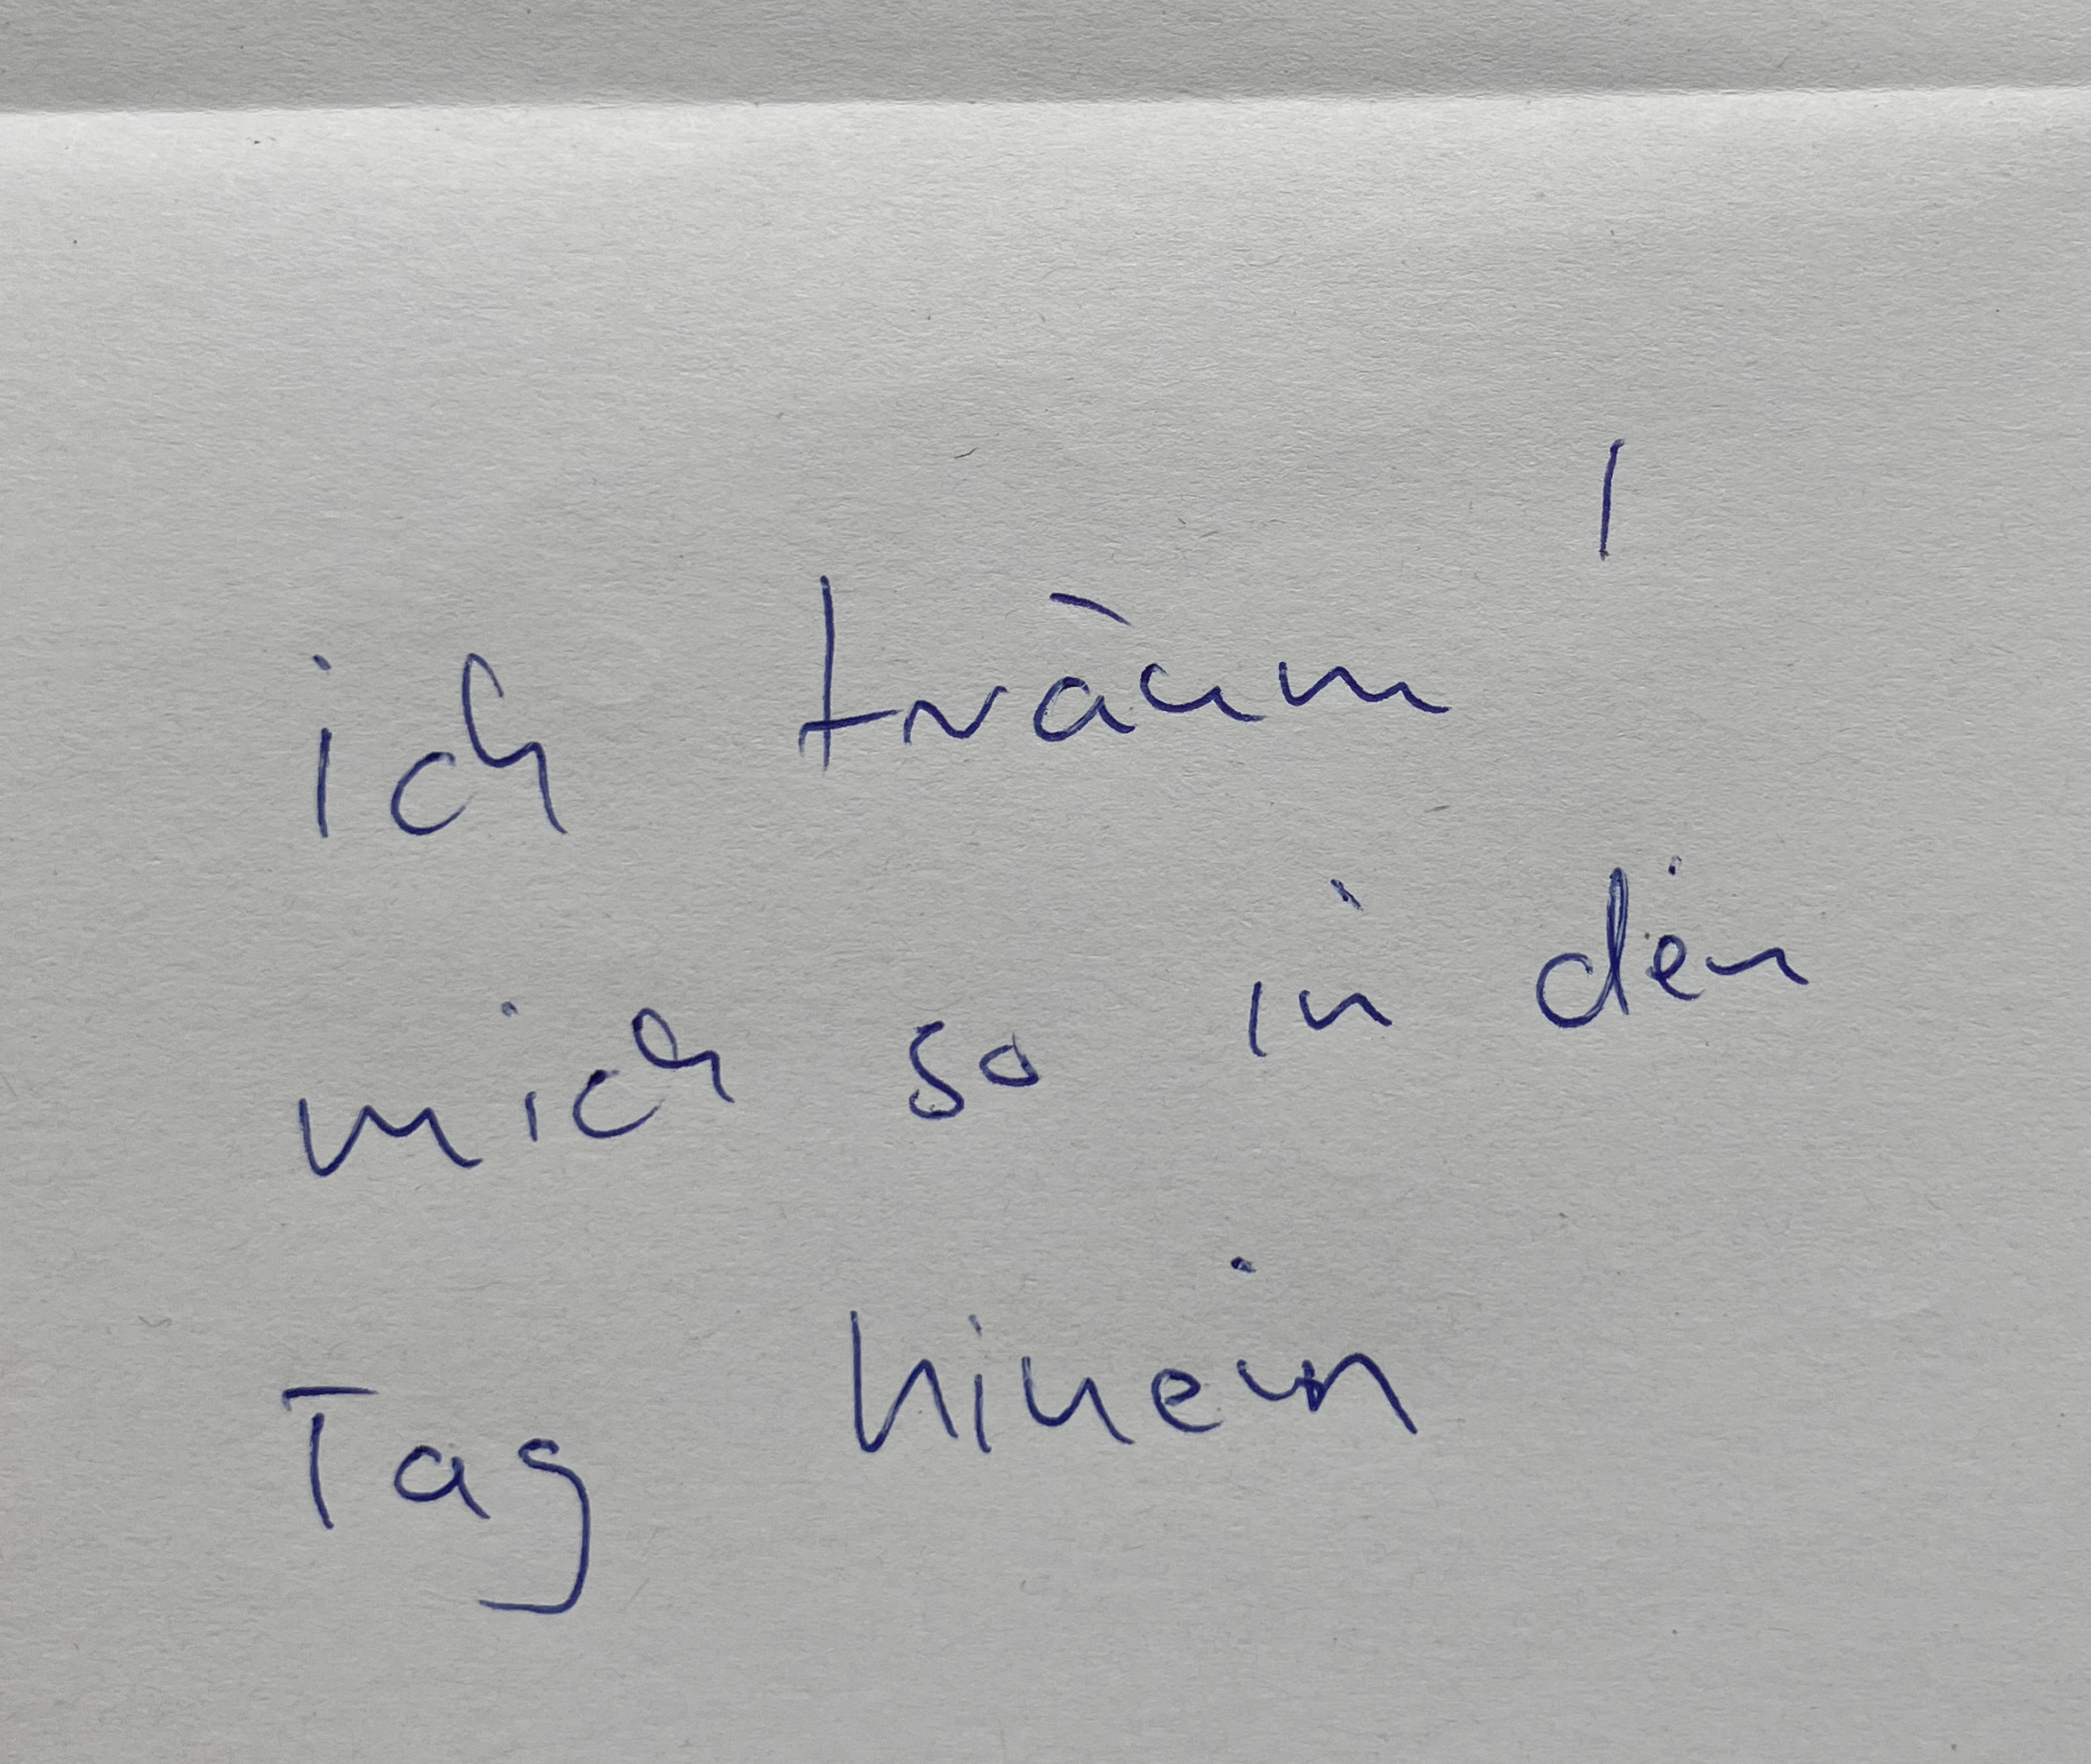 ich träum'
mich so in den
Tag hinein